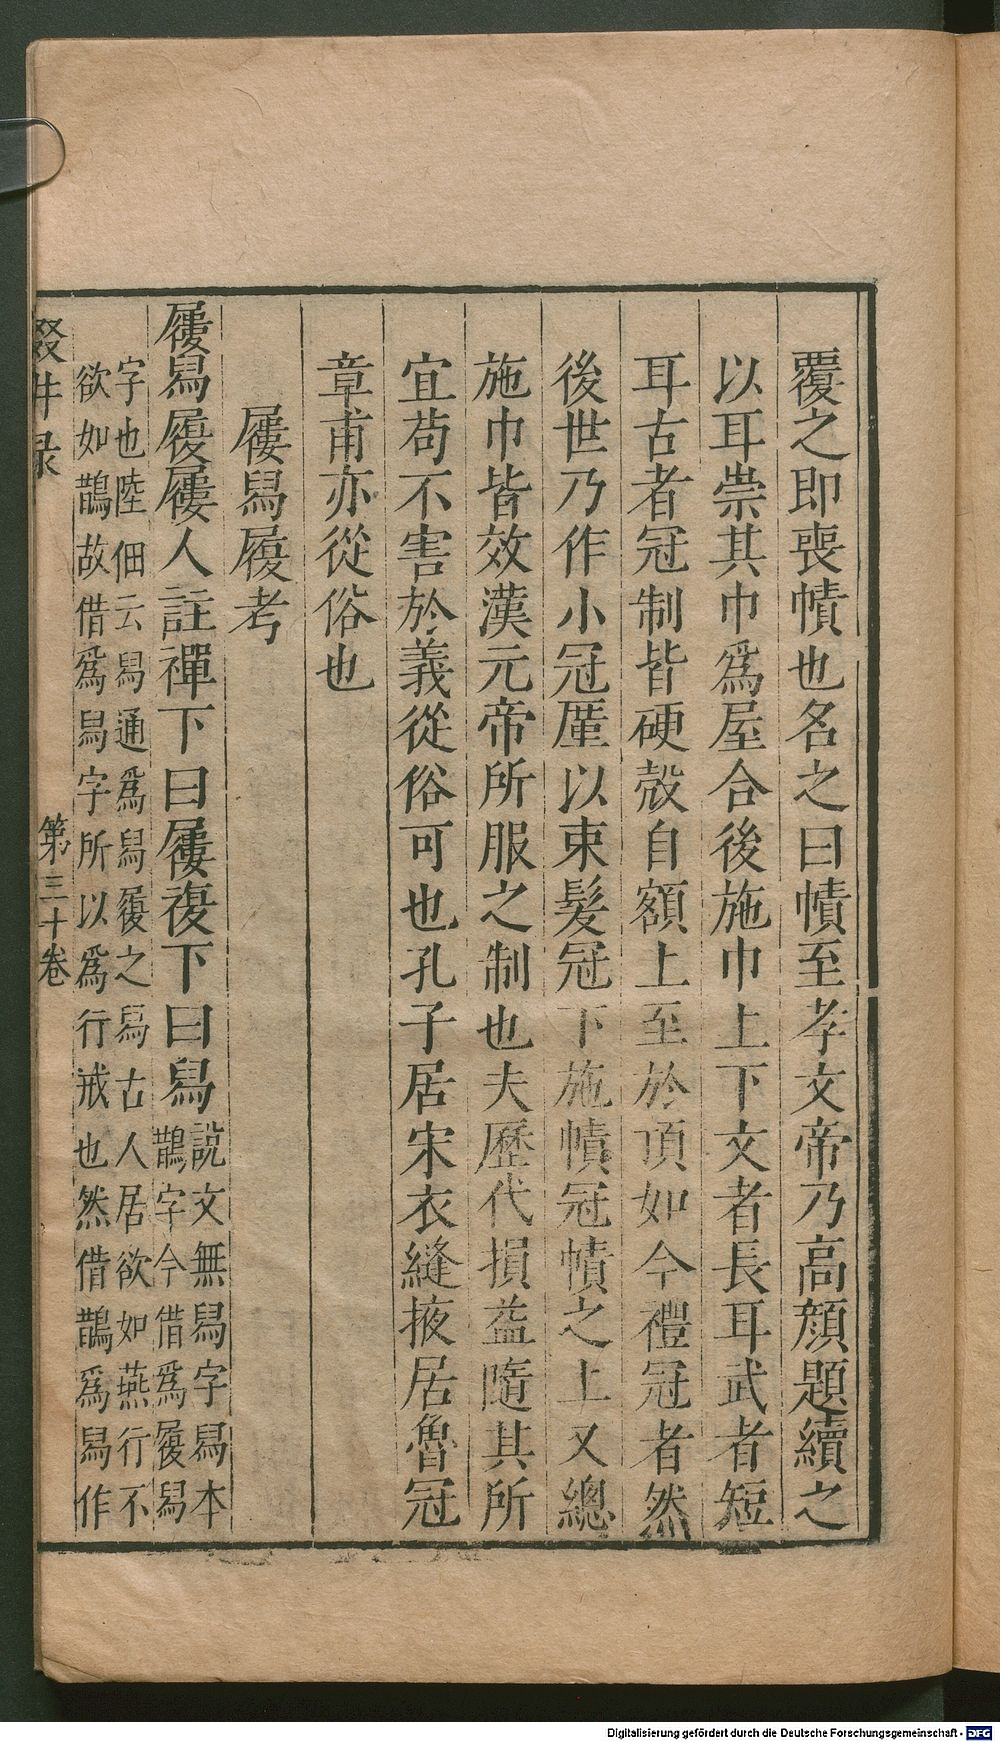 覆之即喪幘也名之曰幘至孝文帝乃高顏題續之
以耳崇其巾爲屋合後施巾上下文者長耳武者短
耳古者冠制皆硬殼自額上至於頂如今禮冠者然
後世乃作小冠厪以束髮冠下施幘冠幘之上又總
施巾皆效漢元帝所服之制也夫歷代損益隨其所
宜苟不害於義從俗可也孔子居宋衣縫掖居魯冠
章甫亦從俗也
屨舄履考
屨舄履屨人註禪下曰屨複下曰舄
說文無舄字舄本
鵲字今借爲履舄
字也陸佃云舄通爲舄履之舄古人居欲如燕行不
欲如鵲故借爲舄字所以爲行戒也然借鵲爲舄作
叕井录
第三十卷
Digitalisierung gefördert durch die Deutsche Forschungsgemeinschaft - DFG